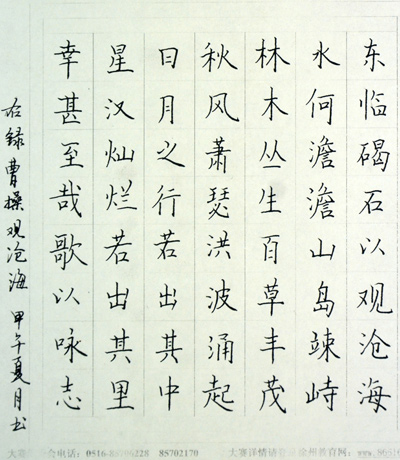 东临碣石以观沧海
水何澹澹山岛竦峙
林木丛生百草丰茂
秋风萧瑟洪波涌起
日月之行若出其中
星汉灿烂若出其里
幸甚至哉歌以咏志
右録曹操观沧海 甲午夏月书
电话：0516- 228 85702170 大赛详情请